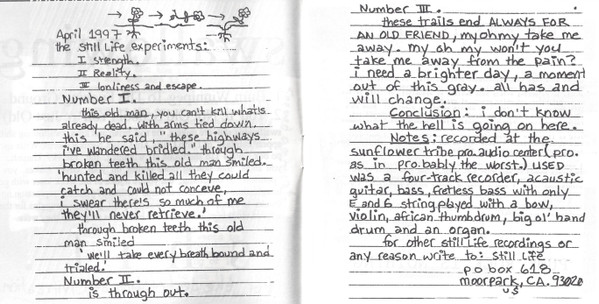 April 1997
the still life experiments:
I strength.
II Reality.
III lonliness and escape.
Number I.
this old man, you can't kill what is
already dead. with arms tied down
this he said, "these highways
i've wandered bridled," through
broken teeth this old man smiled.
'hunted and killed all they could
catch and could not conceve,
i swear there's so much of me
they'll never retrieve.'
through broken teeth this old
man smiled
'we'll take every breath bound and
trialed.'
Number II.
is through out.
Number III.
these trails end ALWAYS FOR
AN OLD FRIEND, my oh my take me
away. my oh my won't you
take me away from the pain?
i need a brighter day, a moment
out of this gray. all has and
will change.
Conclusion: i don't know
what the hell is going on here.
Notes: recorded at the
sunflower tribe pro. audio center (pro.
as in pro.bably the worst.) USED
was a four-track recorder, acaustic
guitar, bass, fretless bass with only
E and G string played with a bow,
violin, african thumbdrum, big ol' hand
drum and an organ.
for other still life recordings or
any reason write to: still life
p o box 618
moorpark, CA. 93020
US